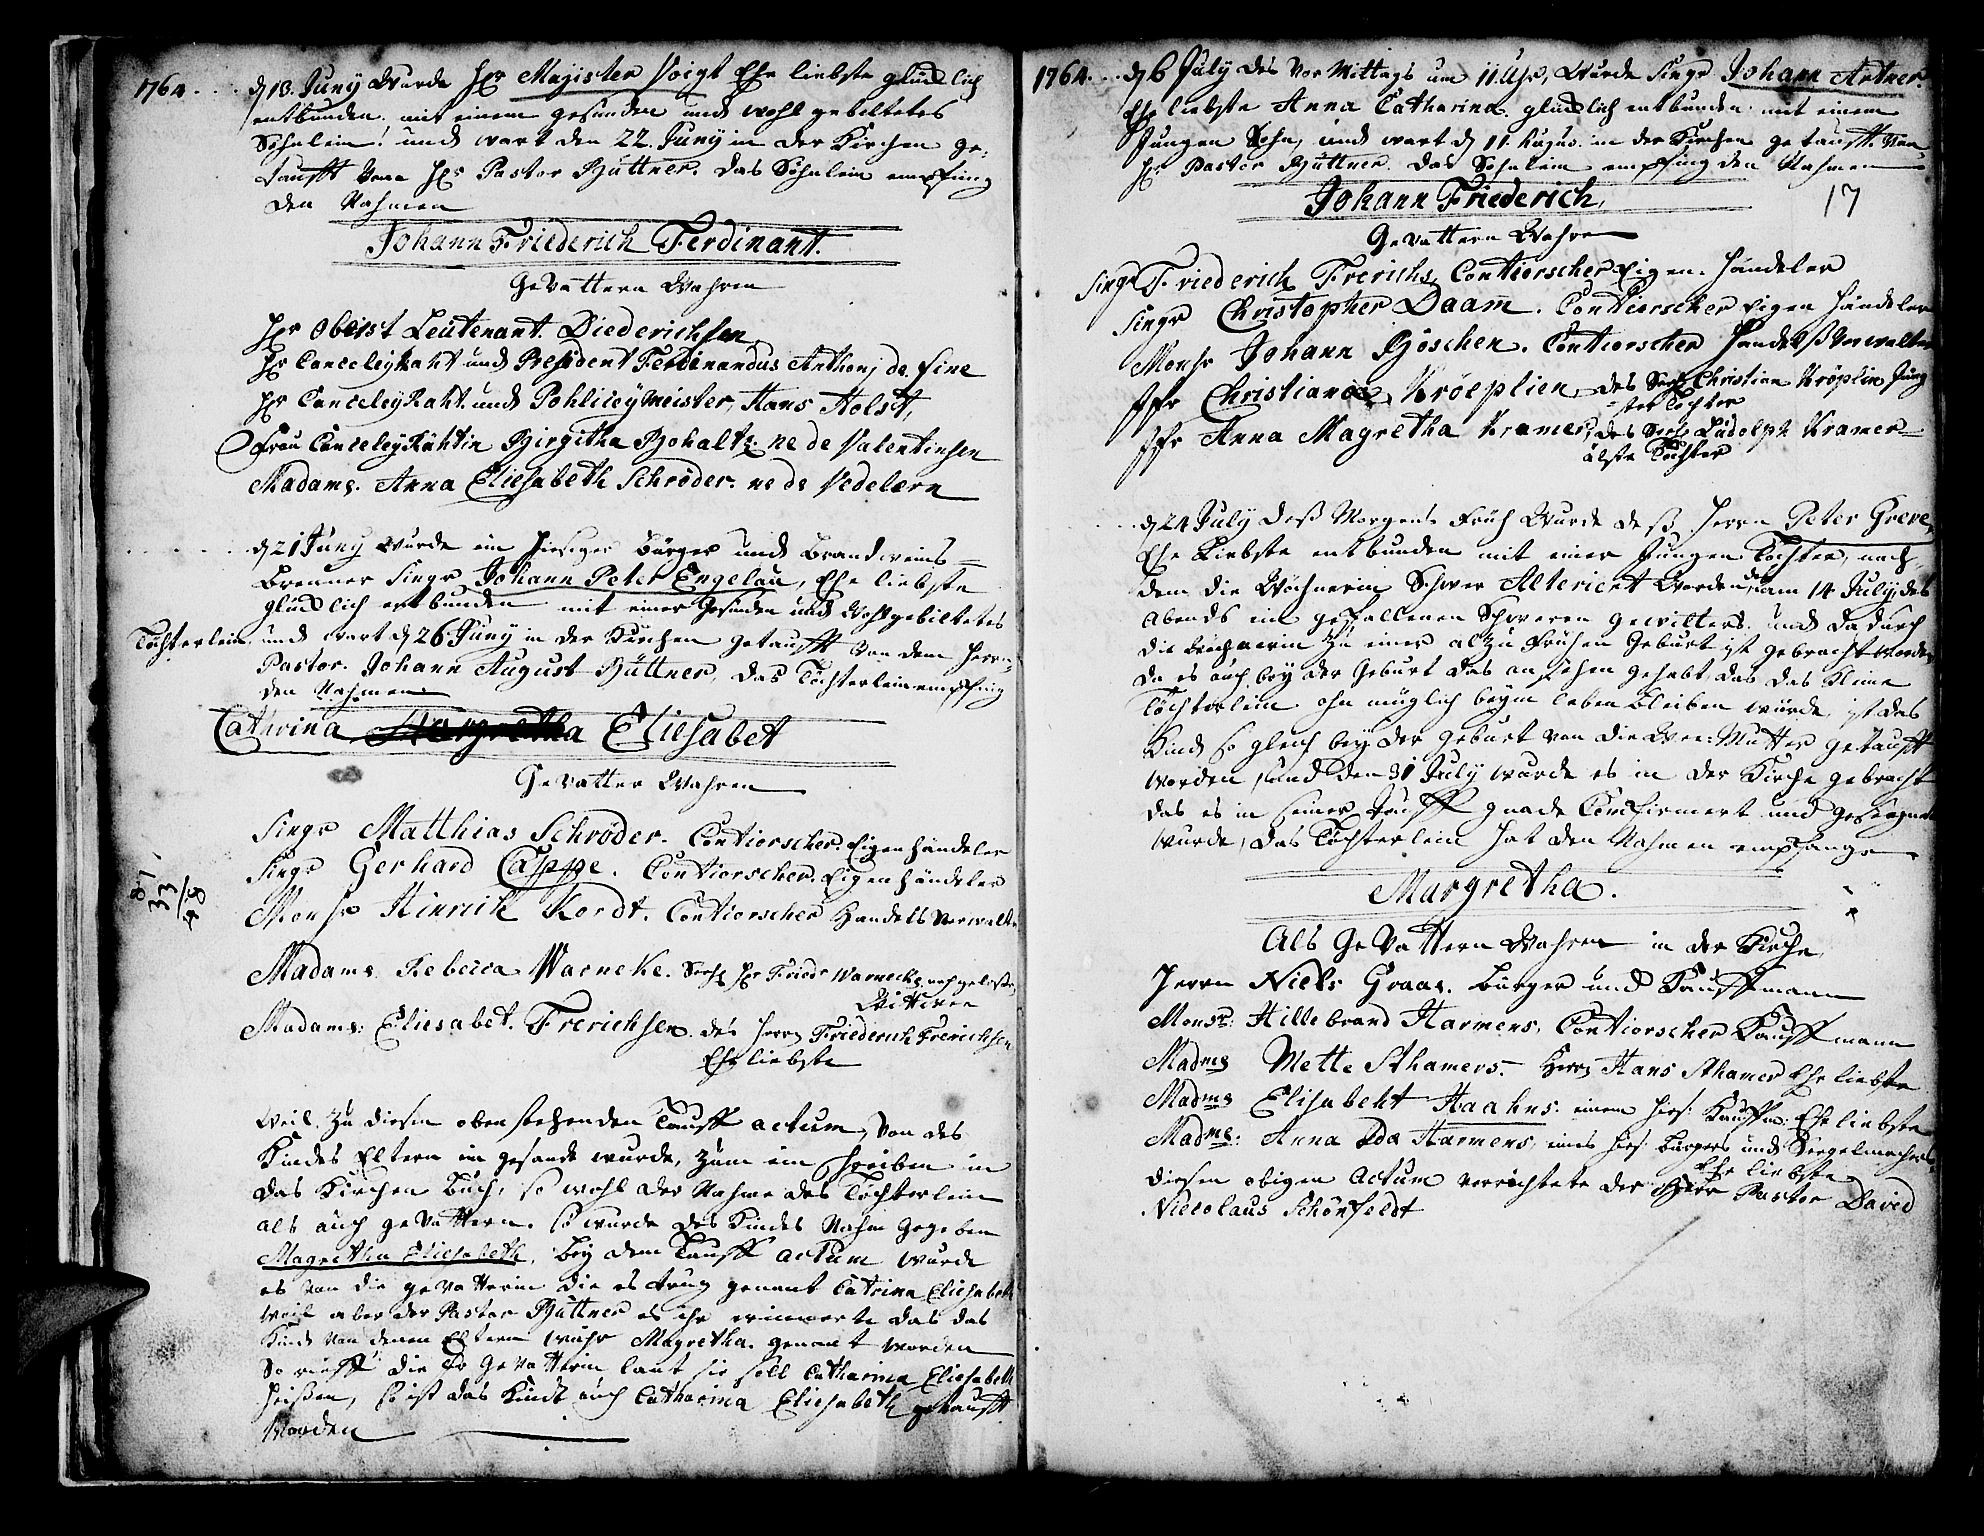 1764. d 13. Juny Wurde Hr Magister Voigt Ehe liebste glücklich
entbunden. mit einem gesunden und wohl gebiltetes
Söhnlein! und wart den 22. Juny in der Kirchen ge:
taufft von Hr Pastor Büttner. das Söhnlein empfing
den Nahmen
Johann Friederich Ferdinant.
Gevattern Wahren
Hr Oberst Leutenant. Diederichsen
Hr Canceleyraht und President Ferdinandus Anthonj de fine
Hr Canceley Raht und Pohlicey Meister, Hans Holst,
Frau Canceley Rähtin Birgitha Bohalt. ne de Valentinsen
Madame. Anna Eliesabeth Schrøder. ne de Vedelærn
d 21 Juny wurde ein hiesiger bürger und Brandweins=
Brenner Singr Johann Peter Engelau, Ehe liebste
glücklich entbunden mit einer Gesunden und Wohlgebiltetes
Töchterlein und wart d 26. Juny in der Kirchen getaufft von dem Herrn
Pastor. Johann August Büttner, das Töchterlein empfing
den Nahmen
Cathrina Margretha Eliesabet
Gevatter Wahren
Singr Matthias Schrøder. Contiorscher. Eigenhändeler
Singr Gerhard Cappe. Contiorscher. Eigenhändeler
Monsr Hinrich Kordt. Contiorscher Handels Verwalter
81
33
48
Madame Rebecca Warneke. Seel Hr Friedr Warnecke nachgelaßene
Wittwen
Madame: Eliesabet. Frerichsen. des Herrn Friederich Frerichsen
Ehe liebste
Weil. zu diesen obenstehenden Tauff actum, von des
Kindes Eltern ein gesande wurde, zum ein schreiben in
das Kirchen buch, so wohl der Nahme des Töchterlein
als auch gevattern. so wurde des Kindes Nahm gegeben
Magretha Eliesabeth, bey dem Tauff actum wurde
es von die gevatterin die es trug genant Catrina Eliesabeth
weil aber der Pastor Büttner es ihr erinnerte das das
Kind von denen Eltern wahr Magretha. genant worden
So rieff die gevatterin laut sie soll Catharina Eliesabeth
heißen, so ist das Kindt auch Catharina Eliesabeth getaufft
Worden
1764. d 6 July des vor Mittags um 11 Uhr, Wurde Singr Johann Artner.
Ehe liebste Anna Catharina. glücklich entbunden mit einem
Jungen Sohn, und wart d 11. August. in der Kirchen getaufft. von
Hr Pastor Büttner. das Söhnlein empfing den Nahmen
Johann Friederich,
17
Gevattern Wahren
Singr Friederich Frerichs, Contiorscher Eigen. Händeler
Singr Christopher Daam. Contiorscher Eigen Händeler
Monsr Johann Böschen. Contiorscher Handelß verwalter
Jfr Christiana Kröeplien, des Seel Christian Kröplin Jüng
=ster Tochter
Jfr Anna Magretha Kramer, des Seel Ludolph Kramer=
älste Tochter
d 24 July deß Morgens Früh Wurde deß Herrn Peter Greve,
Ehe Liebste entbunden mit einer Jungen Tochter, nach
dem die Wöchnerin Schwer Altericet Worden, am 14 July, des
Abends ein gefallenen Schweren gewitters. und dadurch
die zu einer alzu Frühen Geburt ist gebracht worden
da es auch bey der Geburt das ansehen gehabt, das das Kleine
Töchterlein ohn müglich beym leben bleiben würde, ist das
Kind so gleich bey der geburt von die Wee: Mutter getaufft
worden, und den 31 July wurde es in der Kirche gebracht
das es in seiner Tauff gnade Confirmert und gesegnet
wurde, das Töchterlein hat den Nahmen empfangen
Margretha.
Als Gevattern Wahren in der Kirche
Herrn Niels Graae. bürger und Kauffmann
Monsr: Hillebrand Harmens, Contiorscher Kauffmann
Madme Mette Sthamers. Herrn Hans Sthamer Ehe liebste
Madme Elisabeht Haahns. einem hies: Kauffm: Ehe liebste
Madme: Anna Ida Harmens, eines hies: bürgers und Seegelmachers
Ehe liebste
diesen obigen actum verrichtete der Herr Pastor David
Niccolaus Schönfeldt